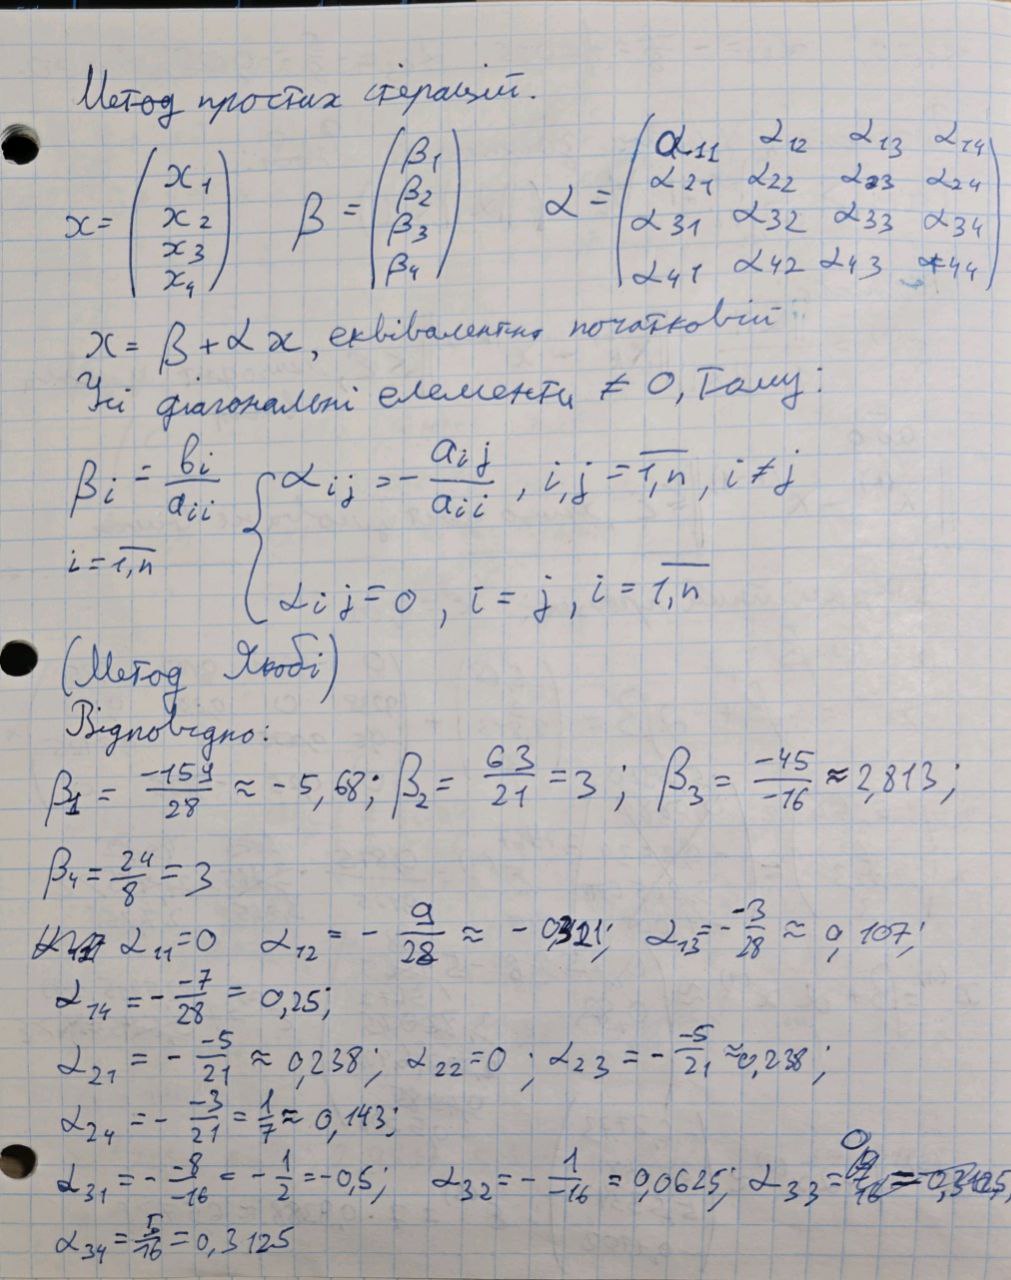 Метод простих ітерацій.
x = (x1 x2 x3 x4) β = (β1 β2 β3 β4) α = (α11 α12 α13 α14
α21 α22 α23 α24
α31 α32 α33 α34
α41 α42 α43 α44)
x = β + αx, еквівалентна початковій
Усі діагональні елементи ≠ 0, тому:
βi = bi/aii { αij = - aij/aii, i,j = 1,n, i ≠ j
i = 1,n
αij = 0, i = j, i = 1,n
(Метод Якобі)
Відповідно:
β1 = -159/28 ≈ -5,68; β2 = 63/21 = 3; β3 = -45/-16 ≈ 2,813;
β4 = 24/8 = 3
α11 = 0 α12 = - 9/28 ≈ - 0,321; α13 = - -3/28 ≈ 0,107;
α14 = - -7/28 = 0,25;
α21 = - -5/21 ≈ 0,238; α22 = 0; α23 = - -5/21 ≈ 0,238;
α24 = - -3/21 = 1/7 ≈ 0,143;
α31 = - -8/-16 = - 1/2 = -0,5; α32 = - 1/-16 = 0,0625; α33 = 0
α34 = 5/16 = 0,3125